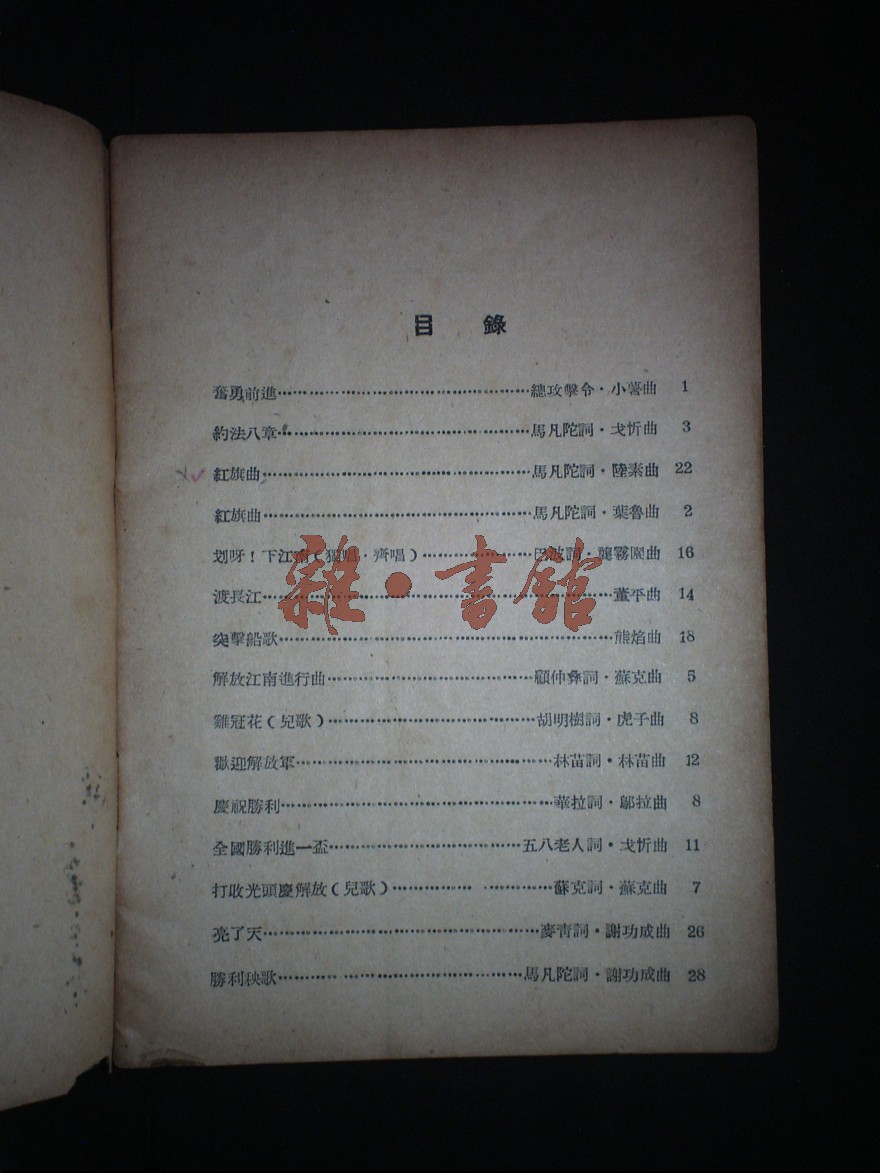 目 錄
奮勇前進……總攻擊令·小薯曲 1
約法八章……馬凡陀詞·戈忻曲 3
紅旗曲……馬凡陀詞·陸素曲 22
紅旗曲……馬凡陀詞·葉魯曲 2
划呀！下江南(獨唱·齊唱)……巴波詞·龔霧園曲 16
渡長江……董平曲 14
突擊船歌……熊焰曲 18
解放江南進行曲……顧仲彝詞·蘇克曲 5
雞冠花(兒歌)……胡明樹詞·虎子曲 8
歡迎解放軍……林苗詞·林苗曲 12
慶祝勝利……華拉詞·鄔拉曲 8
全國勝利進一盃……五八老人詞·戈忻曲 11
打收光頭慶解放(兒歌)……蘇克詞·蘇克曲 7
亮了天……麥青詞·謝功成曲 26
勝利秧歌……馬凡陀詞·謝功成曲 28
雜·書館